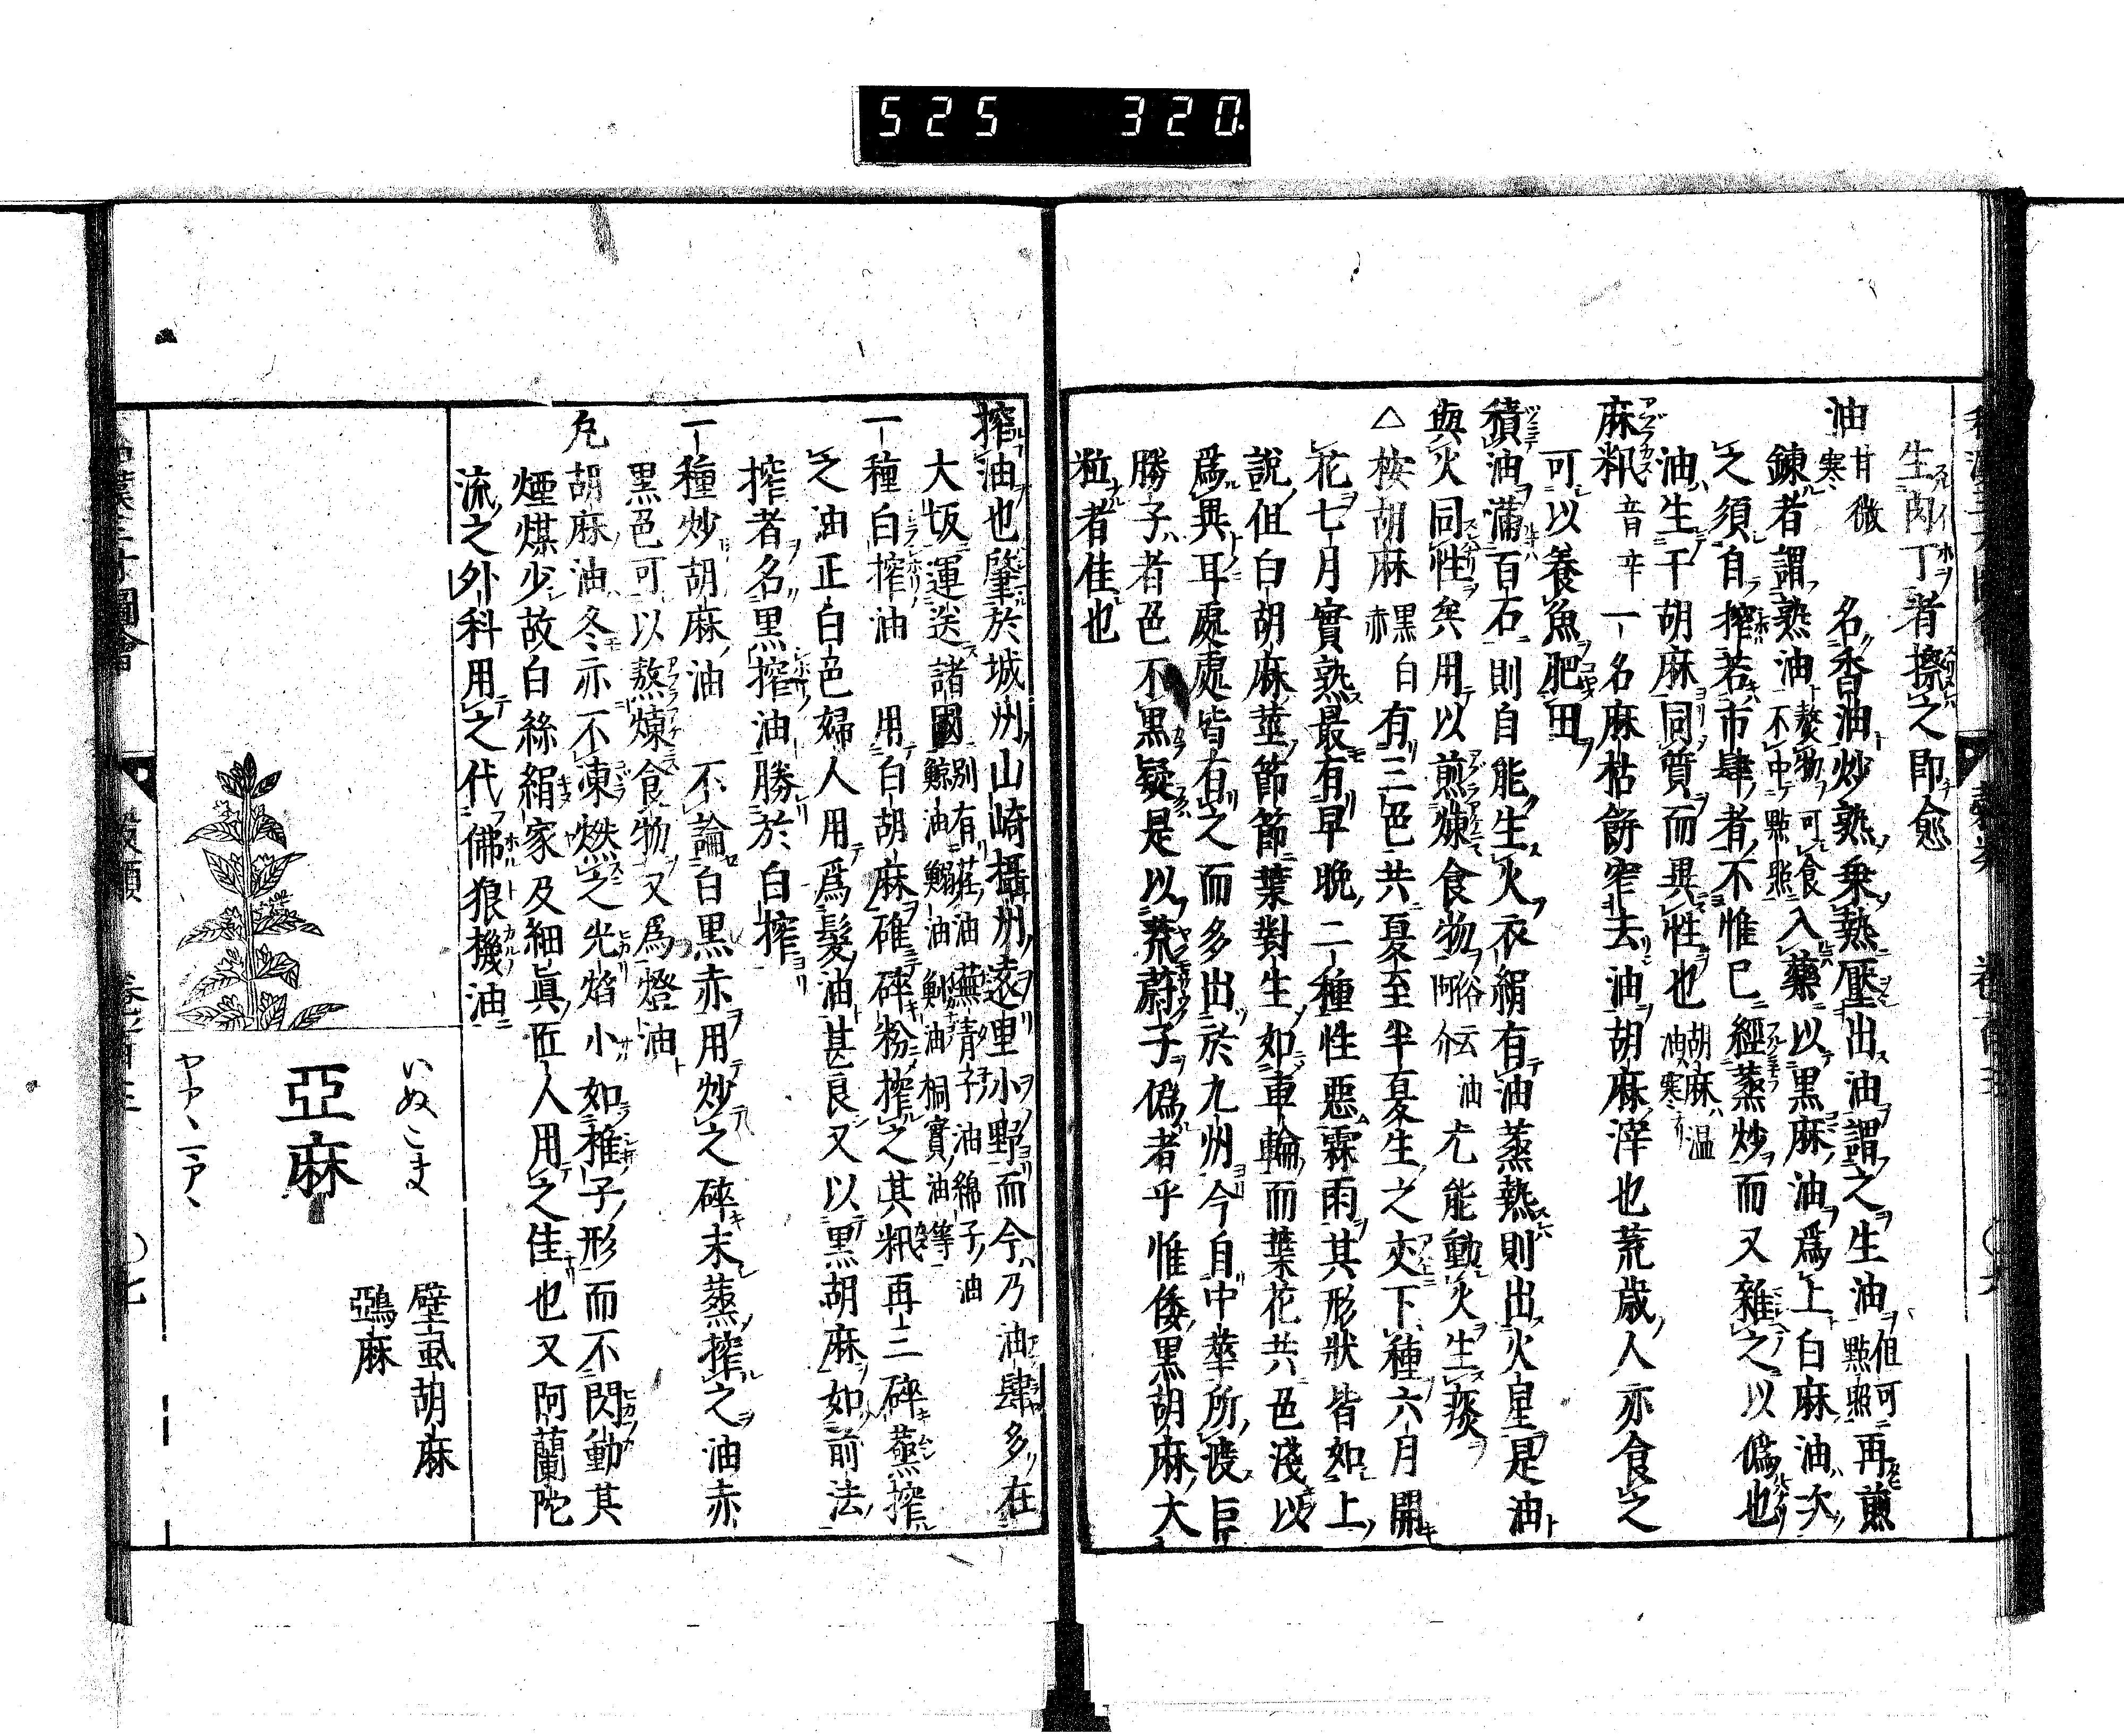 525 320
生肉丁者擦之即愈
油 甘微寒 名香油炒熟乗熱壓出油謂之生油 但可點照 再煎
鍊者謂熟油 熬物可食不中點照 入藥以黒麻油爲上白麻油次
之須自搾若市肆者不惟已經蒸炒而又雜之以僞也
油生于胡麻同質而異性也 胡麻温油寒
麻籸 音辛 一名麻枯餅窄去油胡麻滓也荒歳人亦食之
可以養魚肥田
積油滿百石則自能生火衣絹有油蒸熱則出火星是油
與火同性矣用以煎煉食物 俗云油阿介 尤能動火生痰
△ 按胡麻 黒白赤 有三色共夏至半夏生之交下種六月開
花七月實熟最有早晩二種性惡霖雨其形狀皆如上
說但白胡麻莖節節葉對生如車輪而葉花共色淺以
爲異耳處處皆有之而多出於九州今自中華所渡巨
勝子者色不黒疑是以茺蔚子僞者乎惟倭黒胡麻大
粒者佳也
搾油也肇於城州山崎攝州遠里小野而今乃油肆多在
大坂運送諸國 別有荏油蕪青子油綿子油鯨油鰯油鮒油桐實油等
一種白搾油 用白胡麻碓碎粉搾之其籸再三碎蒸搾
之油正白色婦人用爲髮油甚良又以黒胡麻如前法
搾者名黒搾油勝於白搾
一種炒胡麻油 不論白黒赤用炒之碎末蒸搾之油赤
黒色可以熬煉食物又爲燈油
凡胡麻油冬亦不凍燃之光焰小如稚子形而不閃動其
煙煤少故白絲絹家及細眞匠人用之佳也又阿蘭陀
流之外科用之代佛狼機油
いぬこま
亞麻
ヤアヽ ニアヽ
壁虱胡麻
鵶麻
穀類